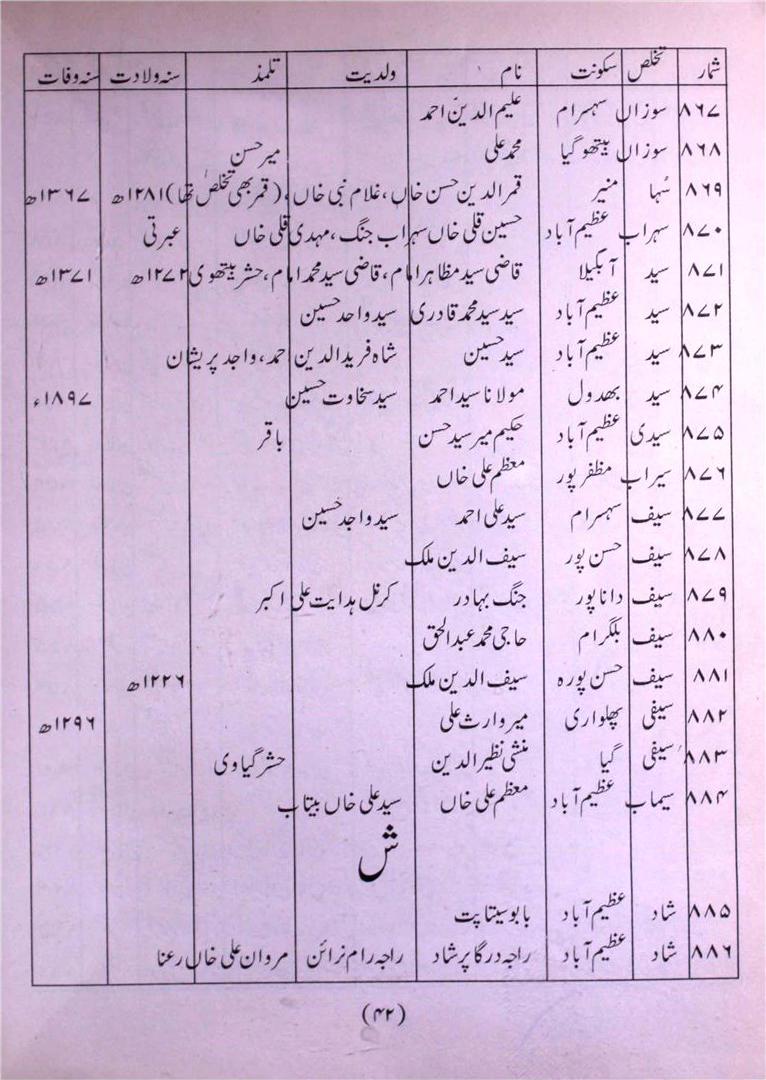 شمار تخلص سکونت نام ولدیت تلمذ سنہ ولادت سنہ وفات
۸۶۷ سوزاں سہسرام علیم الدین احمد
۸۶۸ سوزاں بیتھو گیا محمد علی میر حسن
۸۶۹ سُہا منیر قمر الدین حسن خاں، غلام نبی خاں، (قمر بھی تخلص تھا) ۱۲۸۱ھ ۱۳۶۷ھ
۸۷۰ سہراب عظیم آباد حسین قلی خاں سہراب جنگ، مہدی قلی خاں عبرتی
۸۷۱ سید آبگیلا قاضی سید مظاہر امام، قاضی سید محمد امام، حشر بیتھوی ۱۲۷۲ھ ۱۳۷۱ھ
۸۷۲ سید عظیم آباد سید سید محمد قادری سید واحد حسین
۸۷۳ سید عظیم آباد سید حسین شاہ فرید الدین احمد، واجد پریشان
۸۷۴ سید بھدول مولانا سید احمد سید سخاوت حسین ۱۸۹۷ء
۸۷۵ سیدی عظیم آباد حکیم میر سید حسن باقر
۸۷۶ سیراب مظفر پور معظم علی خاں
۸۷۷ سیف سہسرام سید علی احمد سید واجد حسین
۸۷۸ سیف حسن پور سیف الدین ملک
۸۷۹ سیف داناپور جنگ بہادر کرنل ہدایت علی اکبر
۸۸۰ سیف بلگرام حاجی محمد عبدالحق
۸۸۱ سیف حسن پورہ سیف الدین ملک ۱۲۲۶ھ
۸۸۲ سیفی پھلواری میر وارث علی ۱۲۹۶ھ
۸۸۳ سیفی گیا منشی نظیر الدین حشر گیاوی
۸۸۴ سیماب عظیم آباد معظم علی خاں سید علی خاں بیتاب
ش
۸۸۵ شاد عظیم آباد بابو سیتا پت
۸۸۶ شاد عظیم آباد راجہ درگا پرشاد راجہ رام نرائن مروان علی خاں رعنا
(۴۲)